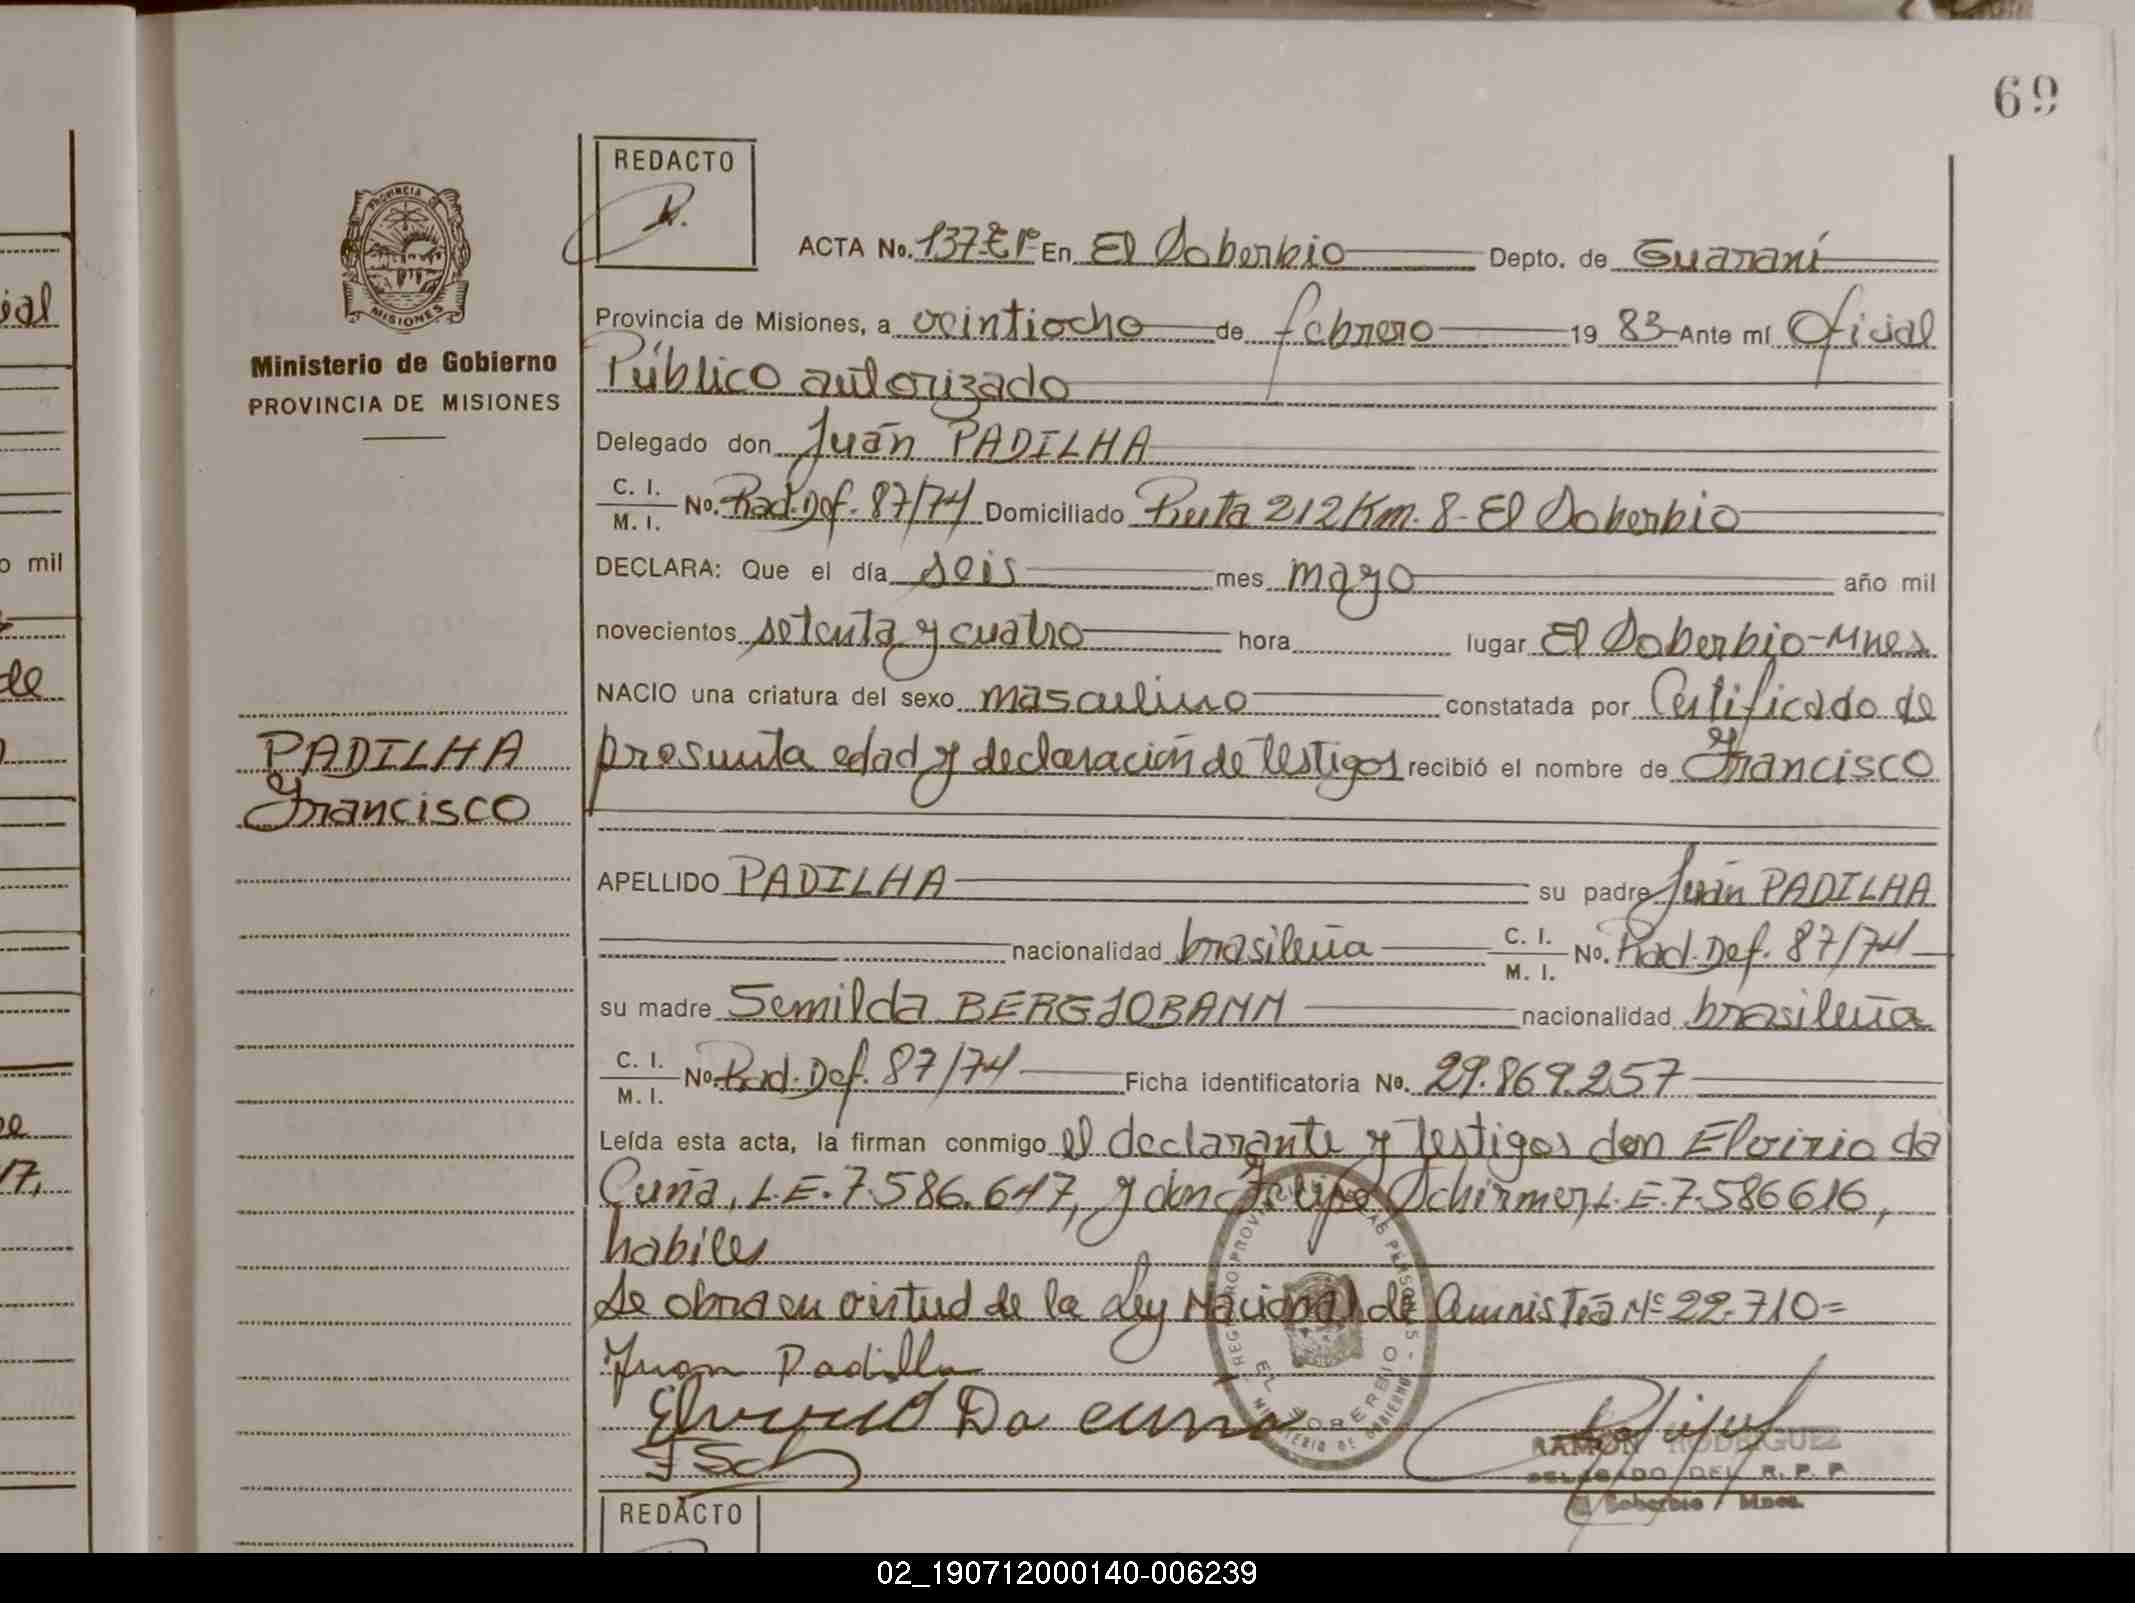 69
ial
o mil
de
17,
PROVINCIA
MISIONES
Ministerio de Gobierno
PROVINCIA DE MISIONES
PADILHA
Francisco
REDACTO
ACTA No. 137 Tº 1º En El Soberbio Depto. de Guaraní
Provincia de Misiones, a veintiocho de febrero 19 83 Ante mí Oficial
Público autorizado
Delegado don Juán PADILHA
C. I.
M. I. No. Rad. Def. 87/74 Domiciliado Ruta 212 Km. 8 - El Soberbio
DECLARA: Que el día seis mes mayo año mil
novecientos setenta y cuatro hora lugar El Soberbio - Mnes
NACIO una criatura del sexo masculino constatada por Certificado de
presunta edad y declaración de testigos recibió el nombre de Francisco
APELLIDO PADILHA su padre Juán PADILHA
nacionalidad brasileña C. I.
M. I. No. Rad. Def. 87/74
su madre Semilda BERGJOBANN nacionalidad brasileña
C. I.
M. I. No. Rad. Def. 87/74 Ficha identificatoria No. 29.869.257
Leída esta acta, la firman conmigo el declarante y testigos don Elvirio da
Cuña, L.E. 7.586.617, y don Felipe Schirmer, L.E. 7.586616,
habiles
Se obra en virtud de la Ley Nacional de Amnistía Nº 22.710=
Juan Padilla
Da cuna
F Sch
EL SOBERBIO
MINISTERIO DE GOBIERNO
RAMON RODRIGUEZ
DELEGADO DEL R. P. P.
El Soberbio / Mnes.
REDACTO
02_190712000140-006239